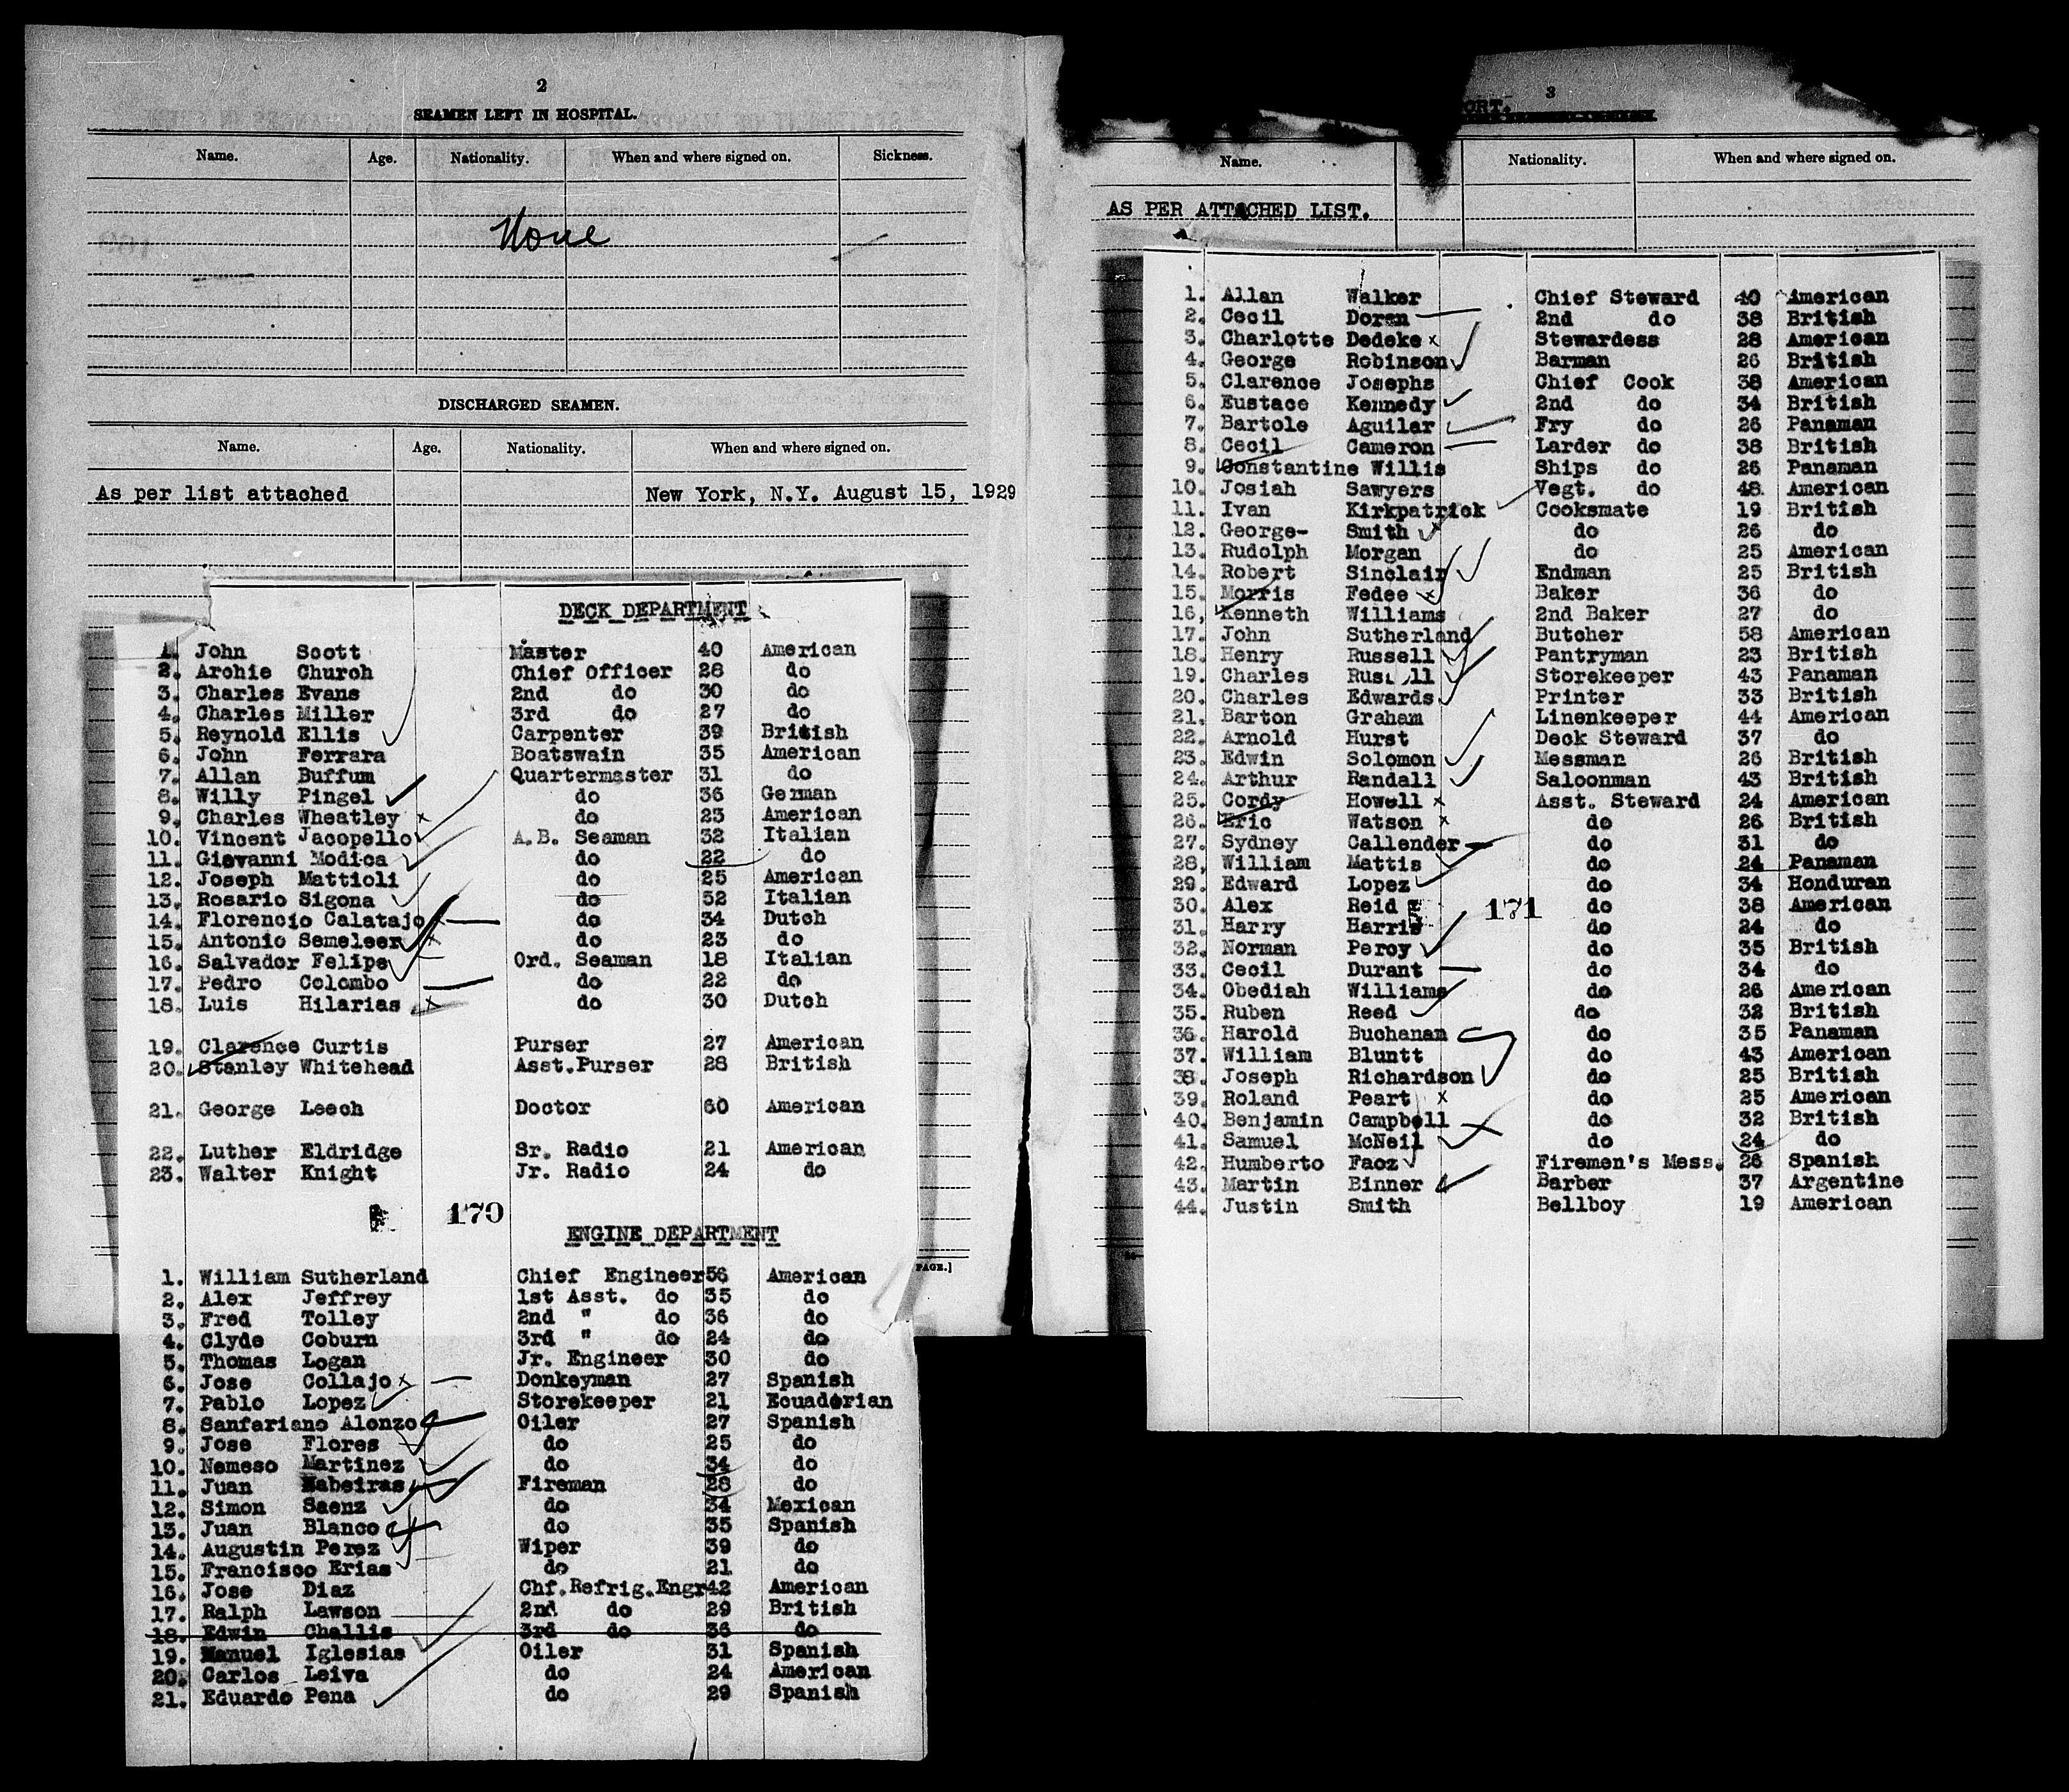 2
SEAMEN LEFT IN HOSPITAL.
Name. Age. Nationality. When and where signed on. Sickness.
None
DISCHARGED SEAMEN.
Name. Age. Nationality. When and where signed on.
As per list attached New York, N.Y. August 15, 1929
DECK DEPARTMENT
1. John Scott Master 40 American
2. Archie Church Chief Officer 28 do
3. Charles Evans 2nd do 30 do
4. Charles Miller 3rd do 27 do
5. Reynold Ellis Carpenter 39 British
6. John Ferrara Boatswain 35 American
7. Allan Buffum Quartermaster 31 do
8. Willy Pingel do 36 German
9. Charles Wheatley do 23 American
10. Vincent Jacopello A.B. Seaman 32 Italian
11. Giovanni Modica do 22 do
12. Joseph Mattioli do 25 American
13. Rosario Sigona do 32 Italian
14. Florencio Calatajo do 34 Dutch
15. Antonio Semeleer do 23 do
16. Salvador Felipe Ord. Seaman 18 Italian
17. Pedro Colombo do 22 do
18. Luis Hilarias do 30 Dutch
19. Clarence Curtis Purser 27 American
20. Stanley Whitehead Asst.Purser 28 British
21. George Leech Doctor 60 American
22. Luther Eldridge Sr. Radio 21 American
23. Walter Knight Jr. Radio 24 do
170
ENGINE DEPARTMENT
PAGE.]
1. William Sutherland Chief Engineer 56 American
2. Alex Jeffrey 1st Asst. do 35 do
3. Fred Tolley 2nd " do 36 do
4. Clyde Coburn 3rd " do 24 do
5. Thomas Logan Jr. Engineer 30 do
6. Jose Collajo Donkeyman 27 Spanish
7. Pablo Lopez Storekeeper 21 Ecuadorian
8. Sanfariano Alonzo Oiler 27 Spanish
9. Jose Flores do 25 do
10. Nemeso Martinez do 34 do
11. Juan Mabeiras Fireman 28 do
12. Simon Saenz do 34 Mexican
13. Juan Blanco do 35 Spanish
14. Augustin Perez Wiper 39 do
15. Francisco Erias do 21 do
16. Jose Diaz Chf.Refrig.Engr 42 American
17. Ralph Lawson 2nd do 29 British
18. Edwin Challis 3rd do 36 do
19. Manuel Iglesias Oiler 31 Spanish
20. Carlos Leiva do 24 American
21. Eduardo Pena do 29 Spanish
3
ORT.
Name. Nationality. When and where signed on.
AS PER ATTACHED LIST.
1. Allan Walker Chief Steward 40 American
2. Cecil Doran 2nd do 38 British
3. Charlotte Dedeke Stewardess 28 American
4. George Robinson Barman 26 British
5. Clarence Josephs Chief Cook 38 American
6. Eustace Kennedy 2nd do 34 British
7. Bartole Aguilar Fry do 26 Panaman
8. Cecil Cameron Larder do 38 British
9. Constantine Willis Ships do 26 Panaman
10. Josiah Sawyers Vegt. do 48 American
11. Ivan Kirkpatrick Cooksmate 19 British
12. George- Smith do 26 do
13. Rudolph Morgan do 25 American
14. Robert Sinclair Endman 25 British
15. Morris Fedee Baker 36 do
16, Kenneth Williams 2nd Baker 27 do
17. John Sutherland Butcher 58 American
18. Henry Russell Pantryman 23 British
19. Charles Russell Storekeeper 43 Panaman
20. Charles Edwards Printer 33 British
21. Barton Graham Linenkeeper 44 American
22. Arnold Hurst Deck Steward 37 do
23. Edwin Solomon Messman 26 British
24. Arthur Randall Saloonman 43 British
25. Cordy Howell Asst. Steward 24 American
26. Eric Watson do 26 British
27. Sydney Callender do 31 do
28, William Mattis do 24 Panaman
29. Edward Lopez do 34 Honduran
30. Alex Reid do 38 American
171
31. Harry Harris do 24 do
32. Norman Percy do 35 British
33. Cecil Durant do 34 do
34. Obediah Williams do 26 American
35. Ruben Reed do 32 British
36. Harold Buchanan do 35 Panaman
37. William Bluntt do 43 American
38. Joseph Richardson do 25 British
39. Roland Peart do 25 American
40. Benjamin Campbell do 32 British
41. Samuel McNeil do 24 do
42. Humberto Faoz Firemen's Mess. 26 Spanish
43. Martin Binner Barber 37 Argentine
44. Justin Smith Bellboy 19 American